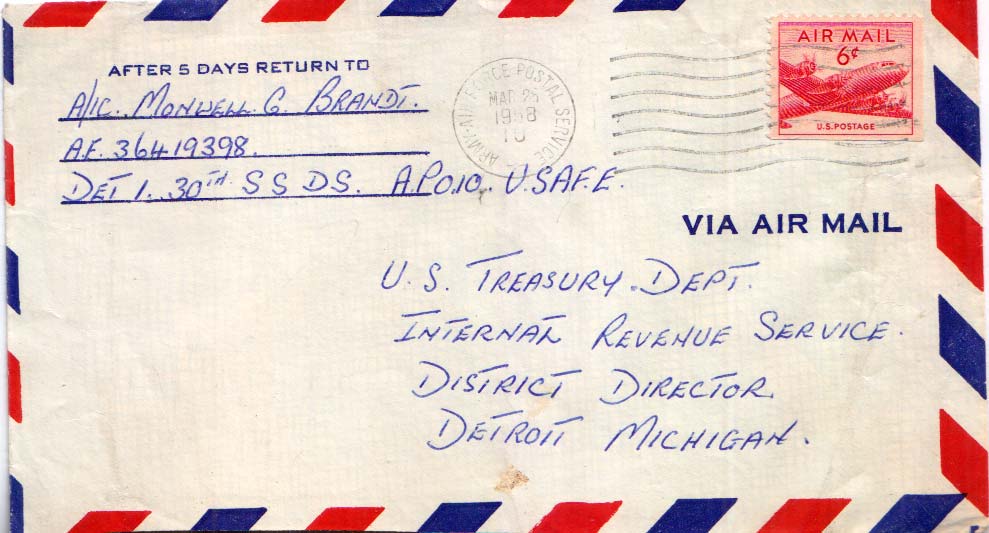 AFTER 5 DAYS RETURN TO
A/1C. MONWELL G. BRANDT.
A.F. 36419398.
DET 1. 30TH S S D S. A.P.O.10. U.S.A.F.E.
ARMY-AIR FORCE POSTAL SERVICE
MAR 25
1958
10
AIR MAIL
6¢
U.S. POSTAGE
VIA AIR MAIL
U.S. TREASURY. DEPT.
INTERNAL REVENUE SERVICE.
DISTRICT DIRECTOR.
DETROIT MICHIGAN.